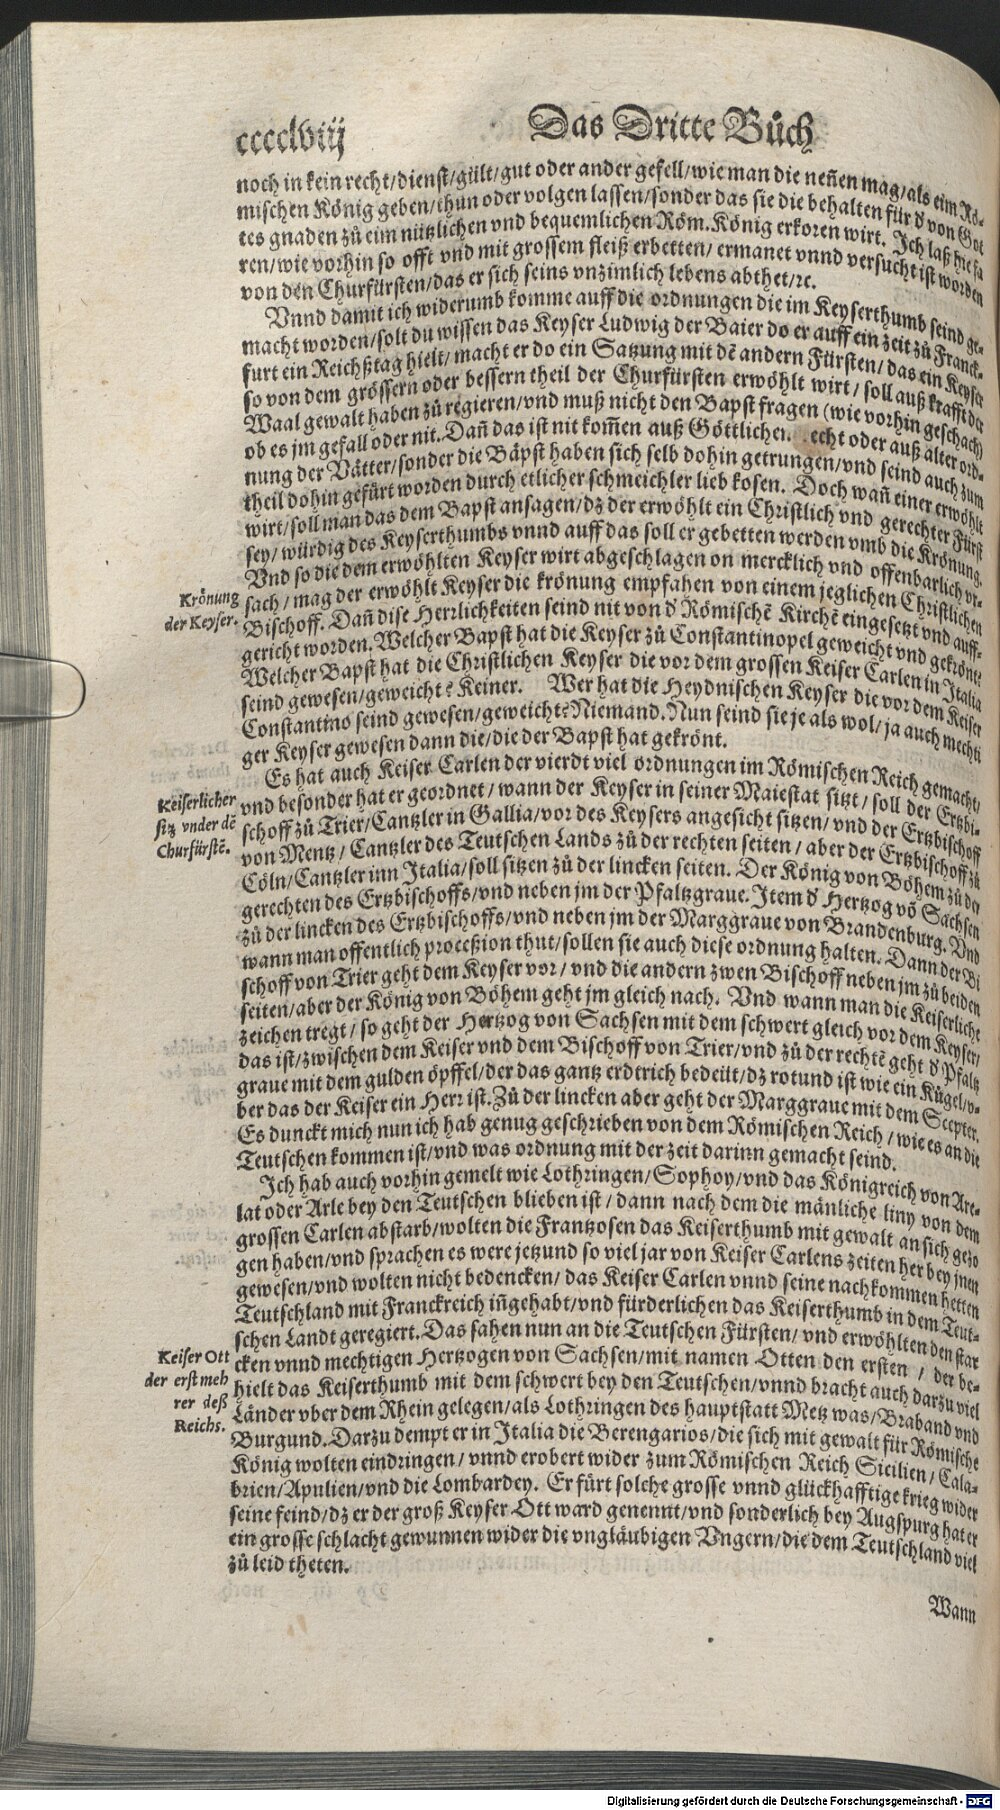 cccclviij
Das Dritte Bůch
noch in kein recht/dienst/gült/gut oder ander gefell/wie man die neñen mag/als eim Rö⸗
mischen König geben/thun oder volgen lassen/sonder das sie die behalten für d̕ von Got
tes gnaden zů eim nützlichen vnd bequemlichen Röm. König erkoren wirt. Ich laß hie fa
ren/wie vorhin so offt vnd mit grossem fleiß erbetten/ ermanet vnnd versucht ist worden
von den Churfürsten/das er sich seins vnzimlich lebens abthet/ꝛc.
Vnnd damit ich widerumb komme auff die ordnungen die im Keyserthumb seind ge⸗
macht worden/solt du wissen das Keyser Ludwig der Baier do er auff ein zeit zů Franck⸗
furt ein Reichßtag hielt/ macht er do ein Satzung mit dẽ andern Fürsten/ das ein Keyser
so von dem grössern oder bessern theil der Churfürsten erwöhlt wirt/ soll auß krafft der
Waal gewalt haben zů regieren/vnd muß nicht den Bapst fragen (wie vorhin geschach)
ob es jm gefall oder nit. Dañ das ist nit kom̃en auß Göttlichen echt oder auß alter ord⸗
nung der Vätter/sonder die Bäpst haben sich selb dohin getrungen/vnd seind auch zum
theil dohin gefürt worden durch etlicher schmeichler lieb kosen. Doch wañ einer erwöhlt
wirt/soll man das dem Bapst ansagen/dz der erwöhlt ein Christlich vnd gerechter Fürst
sey/ würdig des Keyserthumbs vnnd auff das soll er gebetten werden vmb die Krönung.
Vnd so die dem erwöhlten Keyser wirt abgeschlagen on mercklich vnd offenbarlich vr⸗
sach/ mag der erwöhlt Keyser die krönung empfahen von einem jeglichen Christlichen
Krönung
der Keyser.
Bischoff. Dañ dise Herrlichkeiten seind nit von d̕ Römischẽ Kirchẽ eingesetzt vnd auff⸗
gericht worden. Welcher Bapst hat die Keyser zů Constantinopel geweicht vnd gekrönt?
Welcher Bapst hat die Christlichen Keyser die vor dem grossen Keiser Carlen in Italia
seind gewesen/geweicht? Keiner. Wer hat die Heydnischen Keyser die vor dem Keiser
Constantino seind gewesen/geweicht? Niemand. Nun seind sie je als wol/ ja auch mechti
ger Keyser gewesen dann die/die der Bapst hat gekrönt.
Es hat auch Keiser Carlen der vierdt viel ordnungen im Römischen Reich gemacht/
Keiserlicher
sitz vnder dẽ
Churfürstẽ.
vnd besonder hat er geordnet/ wann der Keyser in seiner Maiestat sitzt/ soll der Ertzbi⸗
schoff zů Trier/Cantzler in Gallia/vor des Keysers angesicht sitzen/ vnd der Ertzbischoff
von Mentz/ Cantzler des Teutschen Lands zů der rechten seiten/ aber der Ertzbischoff zů
Cöln/Cantzler inn Italia/soll sitzen zů der lincken seiten. Der König von Böhem zů der
gerechten des Ertzbischoffs/vnd neben jm der Pfaltzgraue. Item d̕ Hertzog võ Sachsen
zů der lincken des Ertzbischoffs/vnd neben jm der Marggraue von Brandenburg. Vnd
wann man offentlich proceßion thut/sollen sie auch diese ordnung halten. Dann der Bi
schoff von Trier geht dem Keyser vor/ vnd die andern zwen Bischoff neben jm zů beiden
seiten/aber der König von Böhem geht jm gleich nach. Vnd wann man die Keiserliche
zeichen tregt/ so geht der Hertzog von Sachsen mit dem schwert gleich vor dem Keyser/
das ist/zwischen dem Keiser vnd dem Bischoff von Trier/vnd zů der rechtẽ geht d̕ Pfaltz
graue mit dem gulden öpffel/der das gantz erdtrich bedeilt/dz rotund ist wie ein Kůgel/v⸗
ber das der Keiser ein Herr ist. Zů der lincken aber geht der Marggraue mit dem Scepter.
Es dunckt mich nun ich hab genug geschrieben von dem Römischen Reich/ wie es an die
Teutschen kommen ist/vnd was ordnung mit der zeit darinn gemacht seind.
Ich hab auch vorhin gemelt wie Lothringen/Sophoy/vnd das Königreich von Are⸗
lat oder Arle bey den Teutschen blieben ist/ dann nach dem die mänliche liny von dem
grossen Carlen abstarb/wolten die Frantzosen das Keiserthumb mit gewalt an sich gezo
gen haben/vnd sprachen es were jetzund so viel jar von Keiser Carlens zeiten her bey jnen
gewesen/vnd wolten nicht bedencken/ das Keiser Carlen vnnd seine nachkommen hetten
Teutschland mit Franckreich iñgehabt/vnd fürderlichen das Keiserthumb in dem Teut⸗
schen Landt geregiert. Das sahen nun an die Teutschen Fürsten/ vnd erwöhlten den star
Keiser Ott
der erst meh
rer deß
Reichs.
cken vnnd mechtigen Hertzogen von Sachsen/mit namen Otten den ersten / der be⸗
hielt das Keiserthumb mit dem schwert bey den Teutschen/vnnd bracht auch darzu viel
Länder vber dem Rhein gelegen/als Lothringen des hauptstatt Metz was/Braband vnd
Burgund. Darzu dempt er in Italia die Berengarios/die sich mit gewalt für Römische
König wolten eindringen/ vnnd erobert wider zum Römischen Reich Sicilien/ Cala⸗
brien/Apulien/vnd die Lombardey. Er fürt solche grosse vnnd glückhafftige krieg wider
seine feind/dz er der groß Keyser Ott ward genennt/vnd sonderlich bey Augspurg hat er
ein grosse schlacht gewunnen wider die vngläubigen Vngern/die dem Teutschland viel
zů leid theten.
Wann
Digitalisierung gefördert durch die Deutsche Forschungsgemeinschaft - DFG